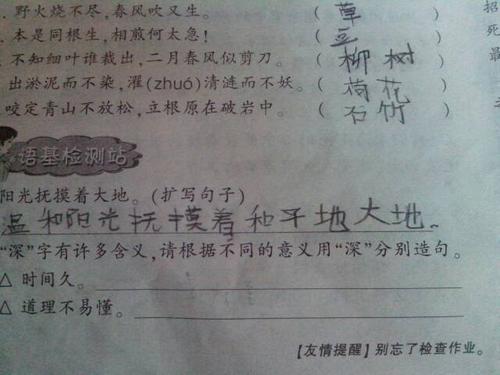 野火烧不尽,春风吹又生。 (草)
本是同根生,相煎何太急! (豆)
不知细叶谁裁出,二月春风似剪刀。 (柳树)
出淤泥而不染,濯(zhuó)清涟而不妖。 (荷花)
咬定青山不放松,立根原在破岩中。 (石竹)
语基检测站
阳光抚摸着大地。(扩写句子)
温和阳光抚摸着和平地大地。
“深”字有许多含义,请根据不同的意义用“深”分别造句。
△ 时间久。
△ 道理不易懂。
【友情提醒】别忘了检查作业。
招
死
最